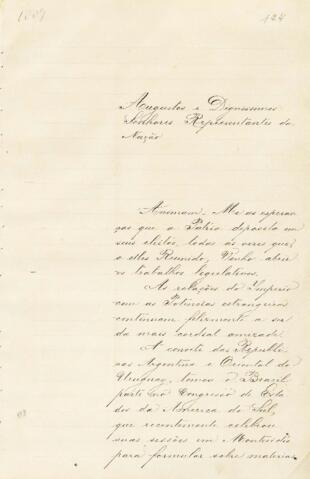 1889
124
Augustos e Digníssimos
Senhores Representantes da
Nação
Animam-Me as esperan
ças que a Patria deposita em
seus eleitos, todas as vezes que,
a elles Reunido, Venho abrir
os trabalhos legislativos.
As relações do Imperio
com as Potencias estrangeiras
continuam felizmente a ser
da mais cordial amizade.
A convite das Republi
cas Argentina e Oriental do
Uruguay, tomou o Brasil
parte no Congresso de Esta
dos da America do Sul,
que recentemente celebrou
suas sessões em Montevidéo
para formular sobre materias